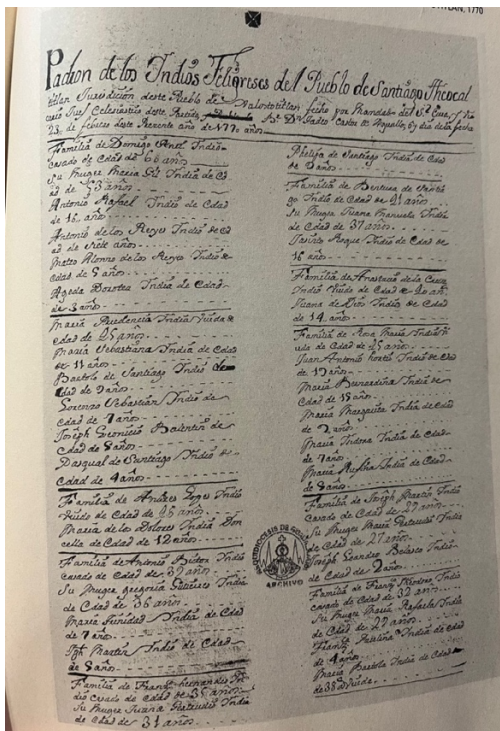 TLAN, 1770
Padron de los Indios Feligreses del Pueblo de Santiago
Jurisdicion deste Pueblo de fecho por Mandado del Sr. Cura, y
deste Partido, Br. Dn. Pedro en dia de la fecha
23 de febrero deste Presente año de 1770 años
Familia de Domingo Indio
casado de edad de 60 años
Su Muger Maria Gil India de Ed
ad de 53 años
Antonio Rafael Indio de Edad
de 16, años
Antonio de los Reyes Indio de Ed
ad de siete años
Mateo Alonso de los Reyes Indio de
edad de 5 años
Ageda Dorotea India de Edad
de 3 años
Maria Prudencia India Viuda de
edad de 25 años
Maria Sebastiana India de Edad
de 11 años
Bartolo de Santiago Indio de
Edad de 9 años
Lorenzo Sebastian Indio de
Edad de 7 años
Joseph Balentin de
Edad de 8 años
Pasqual de Santiago Indio de
edad de 4 años
Familia de Andres Lopes Indio
Viudo de Edad de 26 años
Maria de los Dolores India Don
cella de Edad de 12 años
Familia de Antonio Indio
casado de Edad de 39 años
Su Muger Gregoria Gutieres India
de Edad de 36 años
Maria Trinidad India de Edad
de 7 años
Jph Martin Indio de Edad
de 5 años
Familia de Hernandes In
dio casado de edad de 35 años
Su Muger Juana Gertrudis India
de edad de 31 años
Phelipa de Santiago India de Edad
de 2 años
Familia de Bentura de Santia
go Indio de Edad de 41 años
Su Muger Juana Manuela India
de Edad de 37 años
Jacinto Roque Indio de Edad de
16 años
Familia de Anastacio de la Cruz
Indio Viudo de Edad de 20 añ
Juana de Dios India de Edad
de 14 años
Familia de Rosa Maria India Vi
uda de Edad de 45 años
Juan Antonio Indio de Eda
de 19 años
Maria Bernardina India de
Edad de 15 años
Maria Margarita India de Edad
de 2 años
Maria Isidora India de Edad
de 7 años
Maria Rufina India de Edad
de 5 años
Familia de Joseph Martin Indio
Casado de edad de 27 años
Su Muger Maria Gertrudis India
de Edad de 21 años
Joseph Leandro Indio
de Edad de 2 años
Familia de Indio
casado de edad de 32 años
Su Muger Maria Rafaela India
de Edad de 27 años
India de edad
de 4 años
Maria Bartola India de Edad
de 38 Viuda
ARCHIVO